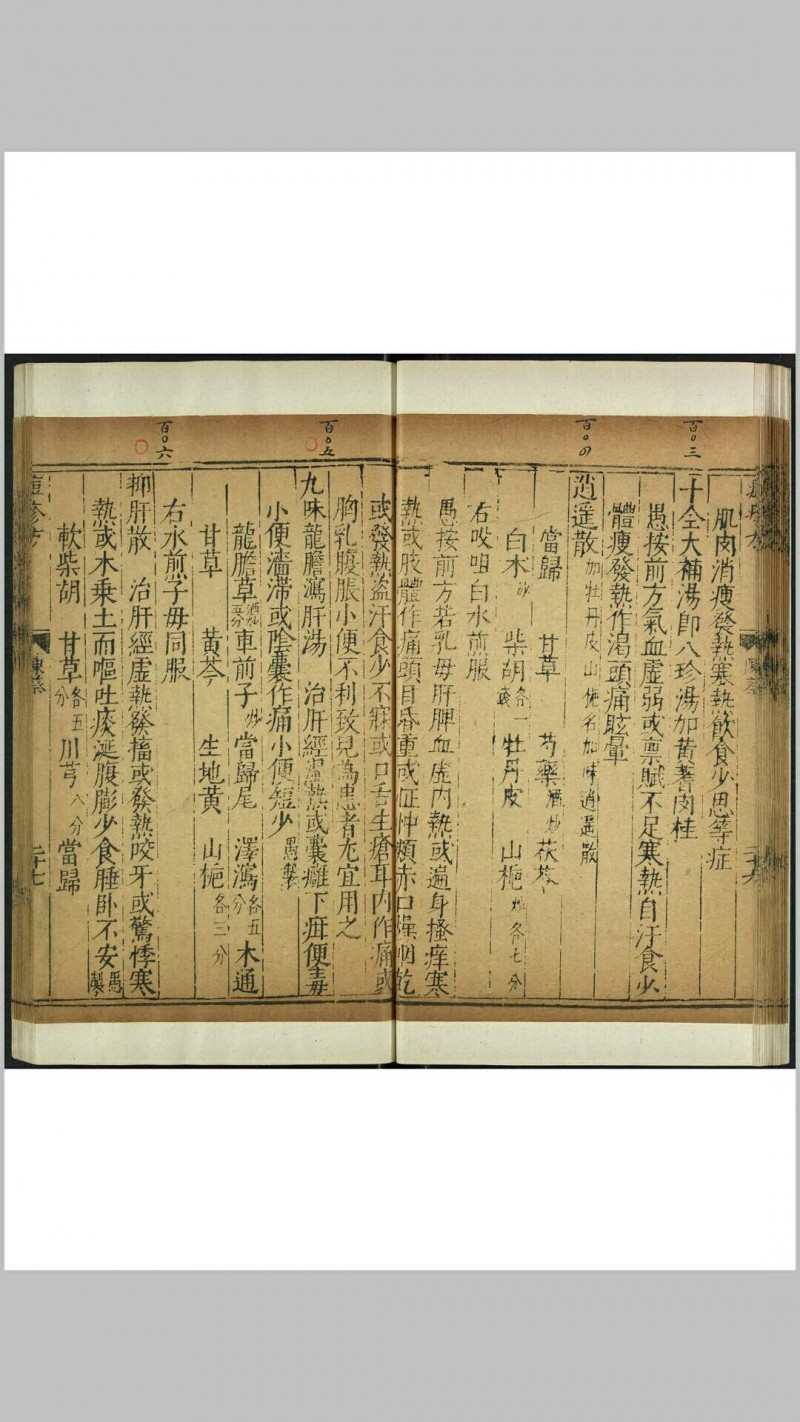 百〇三
百〇四
肌肉消瘦發熱寒熱飲食少思等症
十全大補湯即八珍湯加黃蓍肉桂
愚按前方氣血虛弱或稟賦不足寒熱自汗食少
體瘦發熱作渴頭痛眩暈
逍遥散加牡丹皮山梔名加味逍遥散
當歸 甘草 芍藥酒炒 茯苓
白朮炒 柴胡各一錢 牡丹皮 山梔炒各七分
右㕮咀白水煎服
愚按前方若乳母肝脾血虚内熱或遍身搔痒寒
熱或肢體作痛頭目昏重或怔忡頰赤口燥咽乾
百〇五
百〇六
或發熱盗汗食少不寐或口舌生瘡耳内作痛或
胸乳腹脹小便不利致兒為患者尤宜用之
九味龍膽瀉肝湯 治肝經濕熱或囊癰下疳便毒
小便濇滯或陰囊作痛小便短少愚製
龍膽草酒炒五分 車前子炒 當歸尾 澤瀉各五分 木通
甘草 黃芩 生地黃 山梔各三分
右水煎子母同服
抑肝散 治肝經虚熱發搐或發熱咬牙或驚悸寒
熱或木乗土而嘔吐痰涎腹膨少食睡卧不安愚製
軟柴胡 甘草各五分 川芎八分 當歸
二十七